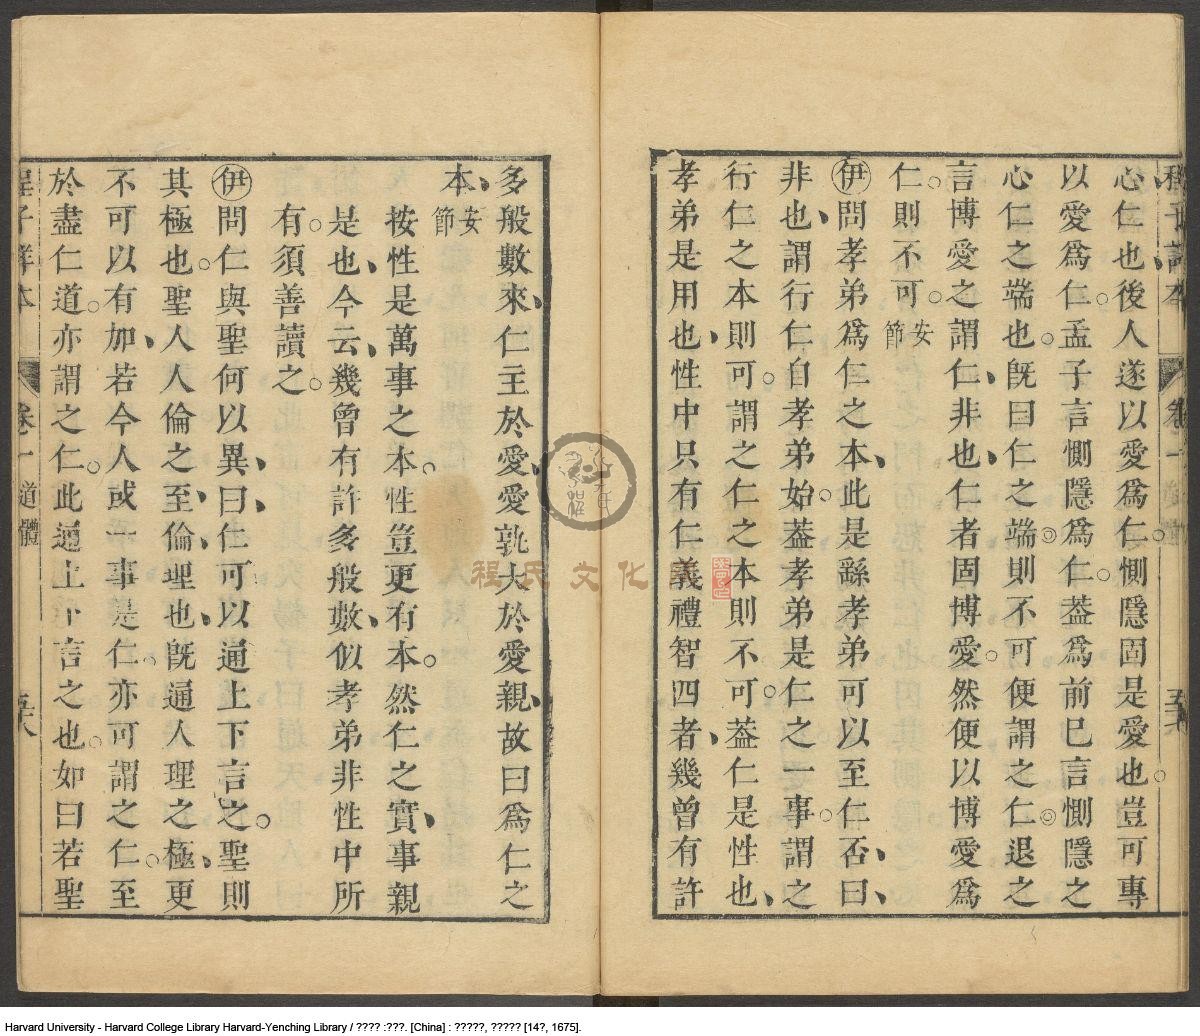 心仁也後人遂以愛爲仁惻隱固是愛也豈可專
以愛爲仁孟子言惻隱爲仁葢爲前已言惻隱之
心仁之端也旣曰仁之端則不可便謂之仁退之
言博愛之謂仁非也仁者固博愛然便以博愛爲
仁則不可安節
伊問孝弟爲仁之本此是繇孝弟可以至仁否曰
非也謂行仁自孝弟始葢孝弟是仁之一事謂之
行仁之本則可謂之仁之本則不可葢仁是性也
孝弟是用也性中只有仁義禮智四者幾曾有許
多般數來仁主於愛愛孰大於愛親故曰爲仁之
本安節
按性是萬事之本性豈更有本然仁之實事親
是也今云幾曾有許多般數似孝弟非性中所
有須善讀之
伊問仁與聖何以異曰仁可以通上下言之聖則
其極也聖人人倫之至倫理也旣通人理之極更
不可以有加若今人或一事是仁亦可謂之仁至
於盡仁道亦謂之仁此通上下言之也如曰若聖
程子詳本 卷一 道體
程氏文化
Harvard University - Harvard College Library Harvard-Yenching Library / ???? :???. [China] : ?????, ????? [14?, 1675].